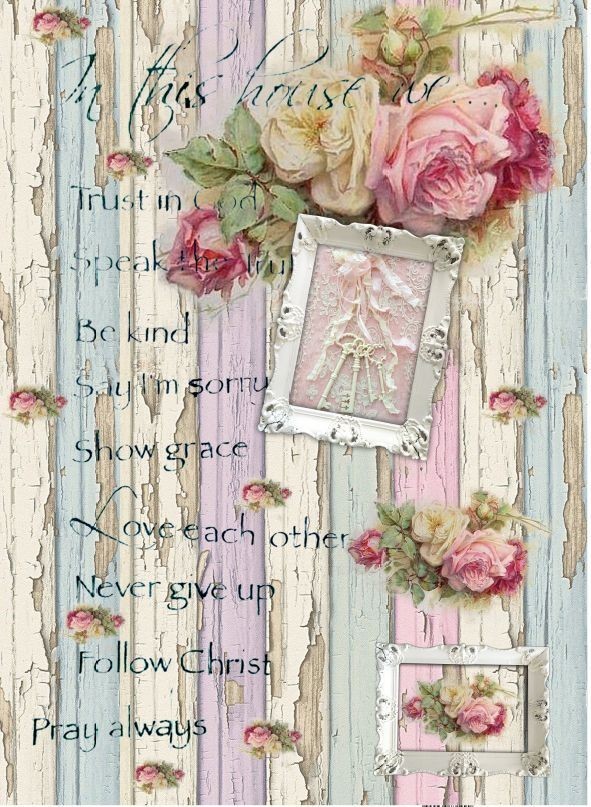 In this house we....
Trust in God
Speak the trut
Be kind
Say I'm sorry
Show grace
Love each other
Never give up
Follow Christ
Pray always